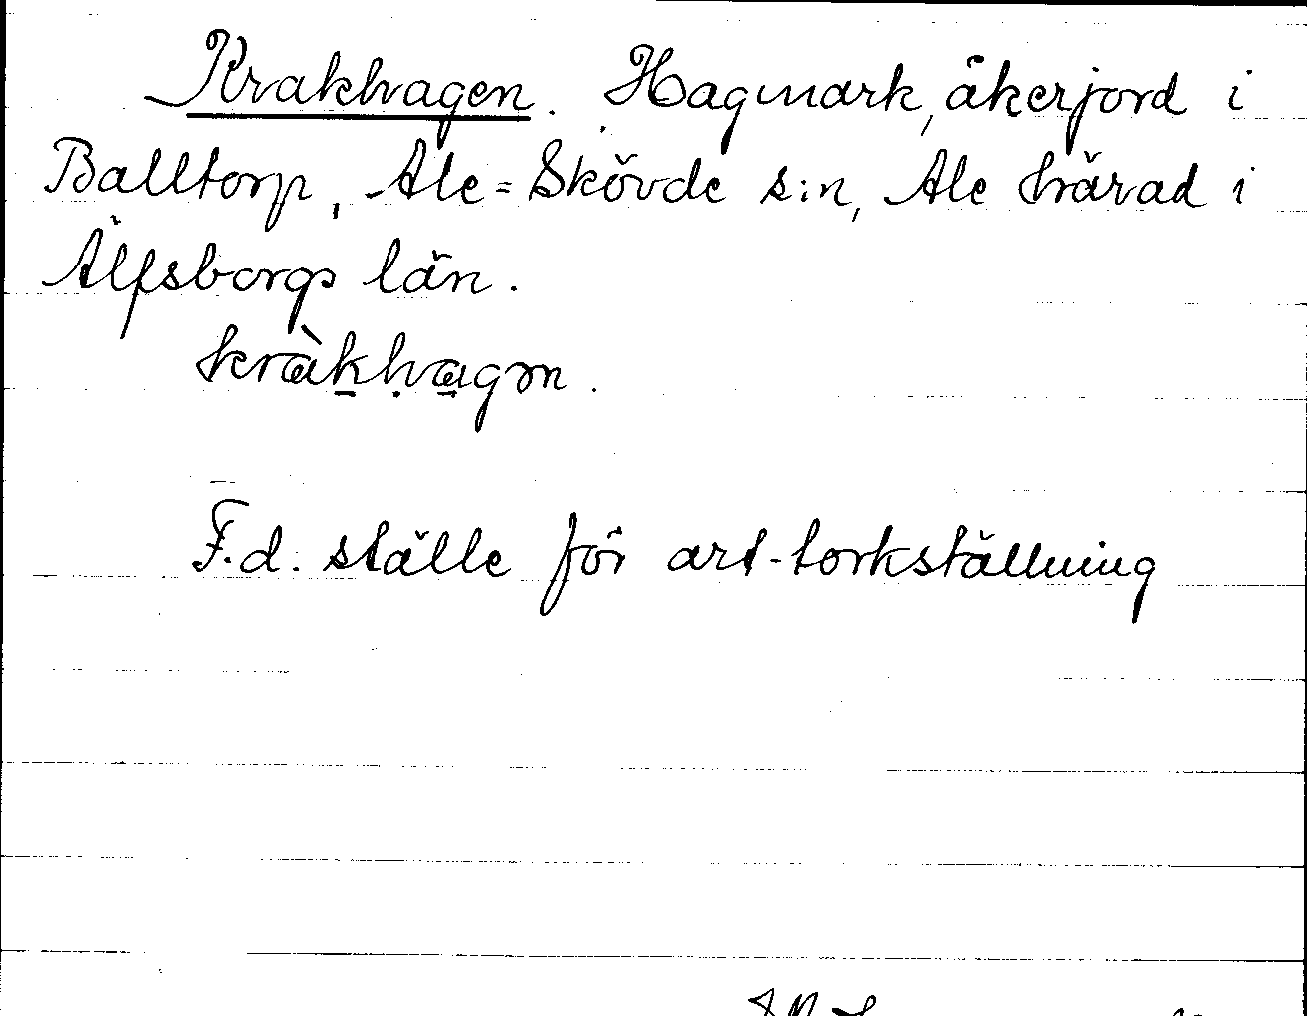 Krakhagen. Hagmark, åkerjord i
Balltorp, Ale=Skövde s:n, Ale härad i
Älfsborgs län.
kràkhagən.
F.d. ställe för art-torkställning